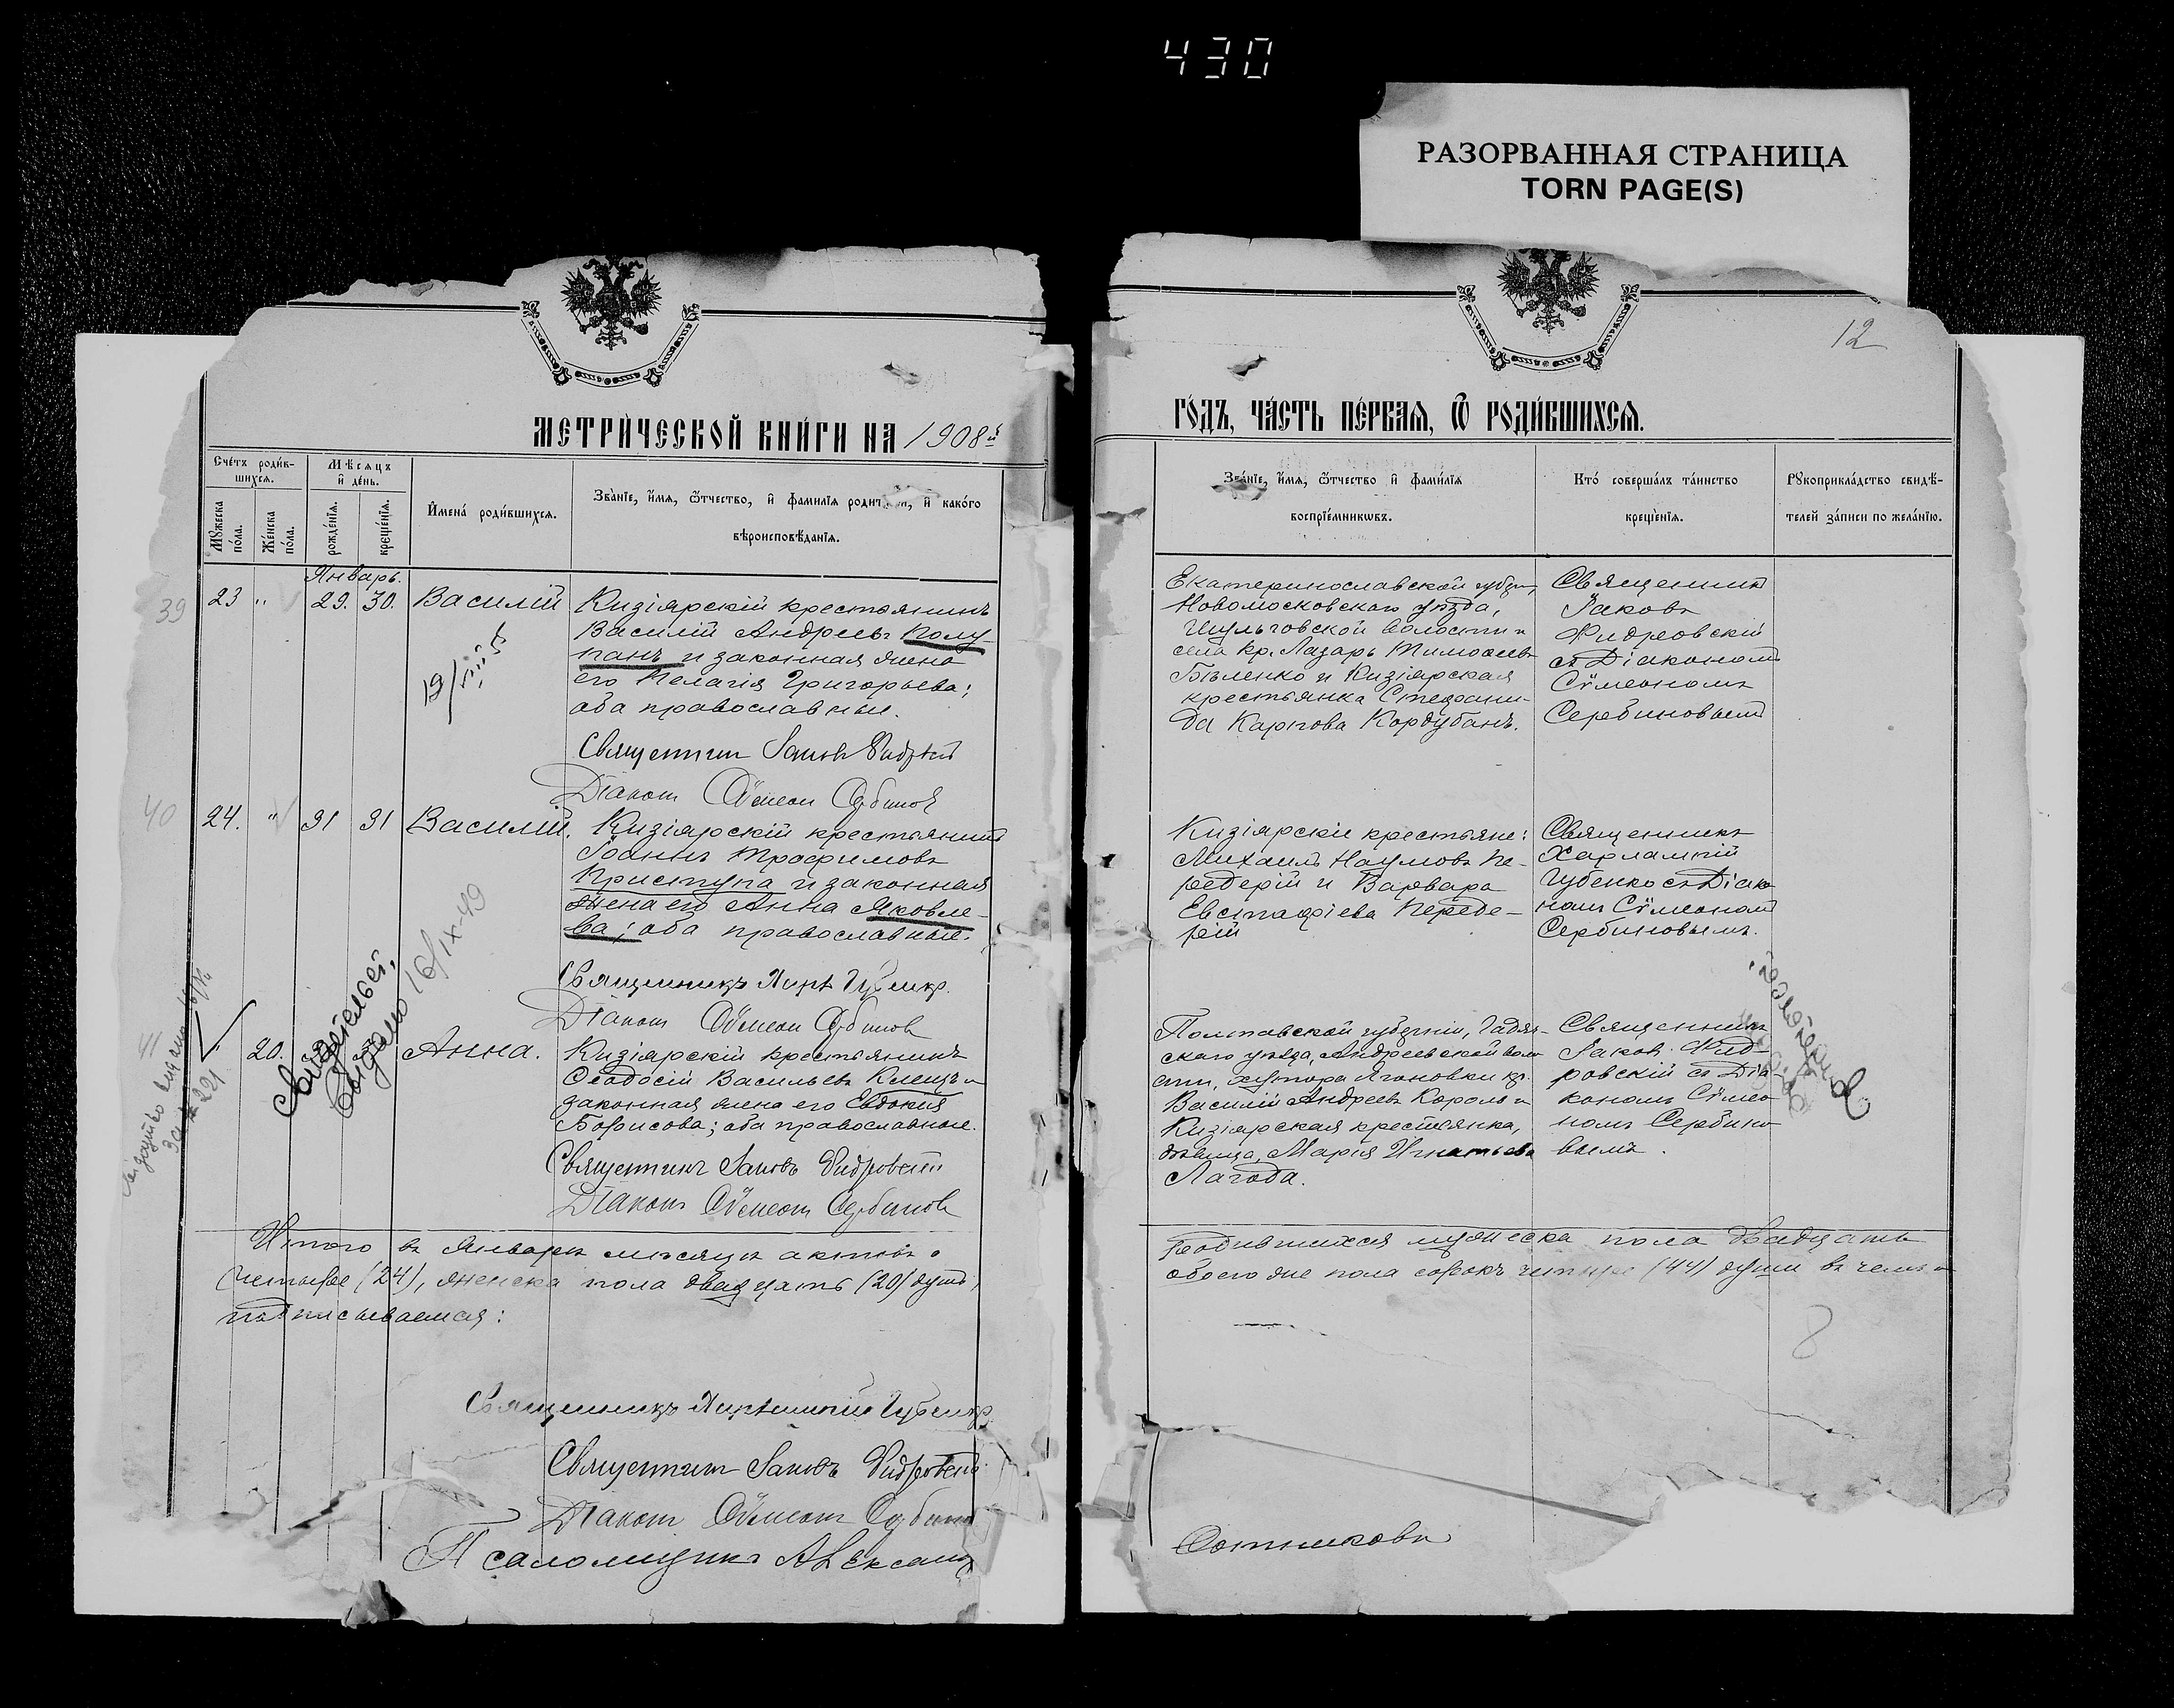 430
РАЗОРВАННАЯ СТРАНИЦА
TORN PAGE(S)
12
МЕТРИ́ЧЕСКОЙ КНИ́ГИ НА 1908й
ГО́ДЪ, ЧА́СТЬ ПЕ́РВАЯ, Ѿ РОДИ́ВШИХСЯ.
Сче́тъ роди́в-
шихся.
Мѣ́сяцъ
и де́нь.
Му́жеска по́ла.
Же́нска по́ла.
рожде́нїя.
креще́нїя.
Имена́ роди́вшихся.
Зва́нїе, и́мя, ѻ́тчество, и фами́лїя родит , и како́го
вѣроисповѣ́данїя.
Зва́нїе, и́мя, ѻ́тчество и фами́лїя
воспрїе́мниковъ.
Кто́ соверша́лъ та́инство
креще́нїя.
Рукоприкла́дство свидѣ́-
телей за́писи по жела́нїю.
Январь.
39
23 " 29. 30. Василій
Кизіярскій крестьянинъ
Василій Андреевъ Колу-
панъ и законная жена
его Пелагія Григорьева;
оба православные.
Священник Іаковъ
Діаконъ Сѵмеон Сербиновъ
Екатеринославской губерн,
Новомосковскаго уѣзда,
волости и
села кр. Лазарь Тимоѳеевъ
Бѣленко и Кизіярская
крестьянка Стефани-
да Карпова Кордубанъ.
Священникъ
Іаковъ
съ Діакономъ
Сѵмеономъ
Сербиновымъ
40
24. " 31 31 Василій.
Кизіярскій крестьянинъ
Іоаннъ Трофимовъ
Приступа и законная
жена его Анна Яковле-
ва; оба православные.
Священникъ Харл. Губенко.
Діаконъ Сѵмеон Сербиновъ
Кизіярскіе крестьяне:
Михаилъ Наумовъ Пе-
редерій и Варвара
Евстафіева Переде-
рій
Священникъ
Харлампій
Губенко съ Діако-
номъ Сѵмеономъ
Сербиновымъ.
16/IX-49
41
20. Анна.
Кизіярскій крестьянинъ
Ѳеодосій Васильевъ Клещъ и
законная жена его Евдокія
Борисова; оба православные.
Священникъ Іаковъ
Діаконъ Сѵмеонъ Сербиновъ
Полтавской губерніи, Гадяч-
скаго уѣзда, Андреевской воло-
сти, хутора кр.
Василій Андреевъ Король и
Кизіярская крестьянка,
дѣвица, Марія Игнатьева
Лагода.
Священникъ
Іаковъ
съ Діа-
кономъ Сѵмео-
номъ Сербино-
вымъ.
Итого въ Январѣ мѣсяцѣ актовъ о
родившихся мужеска пола двадцать
четыре (24), женска пола двадцать (20) душъ,
обоего же пола сорокъ четыре (44) души въ чемъ и
подписываемся:
8
Священникъ Харлампій Губенко
Священник Іаковъ
Діаконъ Сѵмеонъ Сербинов
Псаломщикъ Александ
Сотниковъ